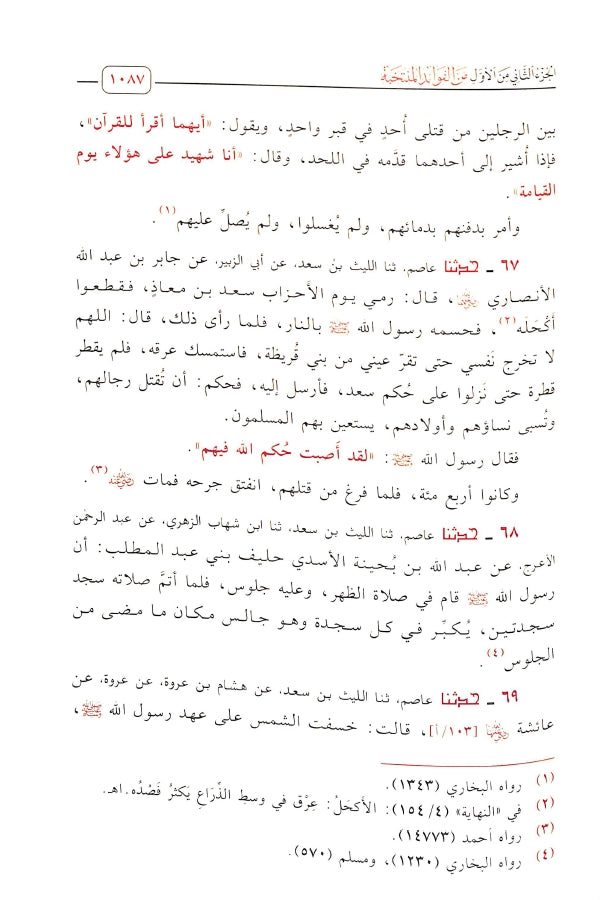 الجزء الثاني من الأول من الفوائد المنتخبة
١٠٨٧
بين الرجلين من قتلى أُحدٍ في قبر واحدٍ، ويقول: «أيهما أقرأ للقرآن»،
فإذا أُشير إلى أحدهما قدَّمه في اللحد، وقال: «أنا شهيد على هؤلاء يوم
القيامة».
وأمر بدفنهم بدمائهم، ولم يُغسلوا، ولم يُصلِّ عليهم(١).
٦٧ ـ حدثنا عاصم، ثنا الليث بن سعد، عن أبي الزبير، عن جابر بن عبد الله
الأنصاري رضي الله عنه، قال: رمي يوم الأحزاب سعد بن معاذٍ، فقطعوا
أَكْحَلَه(٢)، فحسمه رسول الله ﷺ بالنار، فلما رأى ذلك، قال: اللهم
لا تخرج نَفْسي حتى تقرّ عيني من بني قُريظة، فاستمسك عرقه، فلم يقطر
قطرة حتى نَزلوا على حُكم سعد، فأرسل إليه، فحكم: أن تُقتل رجالهم،
وتُسبى نساؤهم وأولادهم، يستعين بهم المسلمون.
فقال رسول الله ﷺ: «لقد أَصبت حُكم الله فيهم».
وكانوا أربع مئة، فلما فرغ من قتلهم، انفتق جرحه فمات رضي الله عنه(٣).
٦٨ ـ حدثنا عاصم، ثنا الليث بن سعد، ثنا ابن شهاب الزهري، عن عبد الرحمٰن
الأعرج، عن عبد الله بن بُحينة الأسدي حليف بني عبد المطلب: أن
رسول الله ﷺ قام في صلاة الظهر، وعليه جلوس، فلما أتمَّ صلاته سجد
سجدتين، يُكبِّر في كل سجدة وهو جالس مكان ما مضى من
الجلوس(٤).
٦٩ ـ حدثنا عاصم، ثنا الليث بن سعد، عن هشام بن عروة، عن عروة، عن
عائشة رضي الله عنها [١٠٣/أ]، قالت: خسفت الشمس على عهد رسول الله ﷺ،
(١) رواه البخاري (١٣٤٣).
(٢) في «النهاية» (٤/ ١٥٤): الأكحَلُ: عِرْق في وسط الذِّرَاعِ يَكثرُ فَصْدُه.اهـ.
(٣) رواه أحمد (١٤٧٧٣).
(٤) رواه البخاري (١٢٣٠)، ومسلم (٥٧٠).